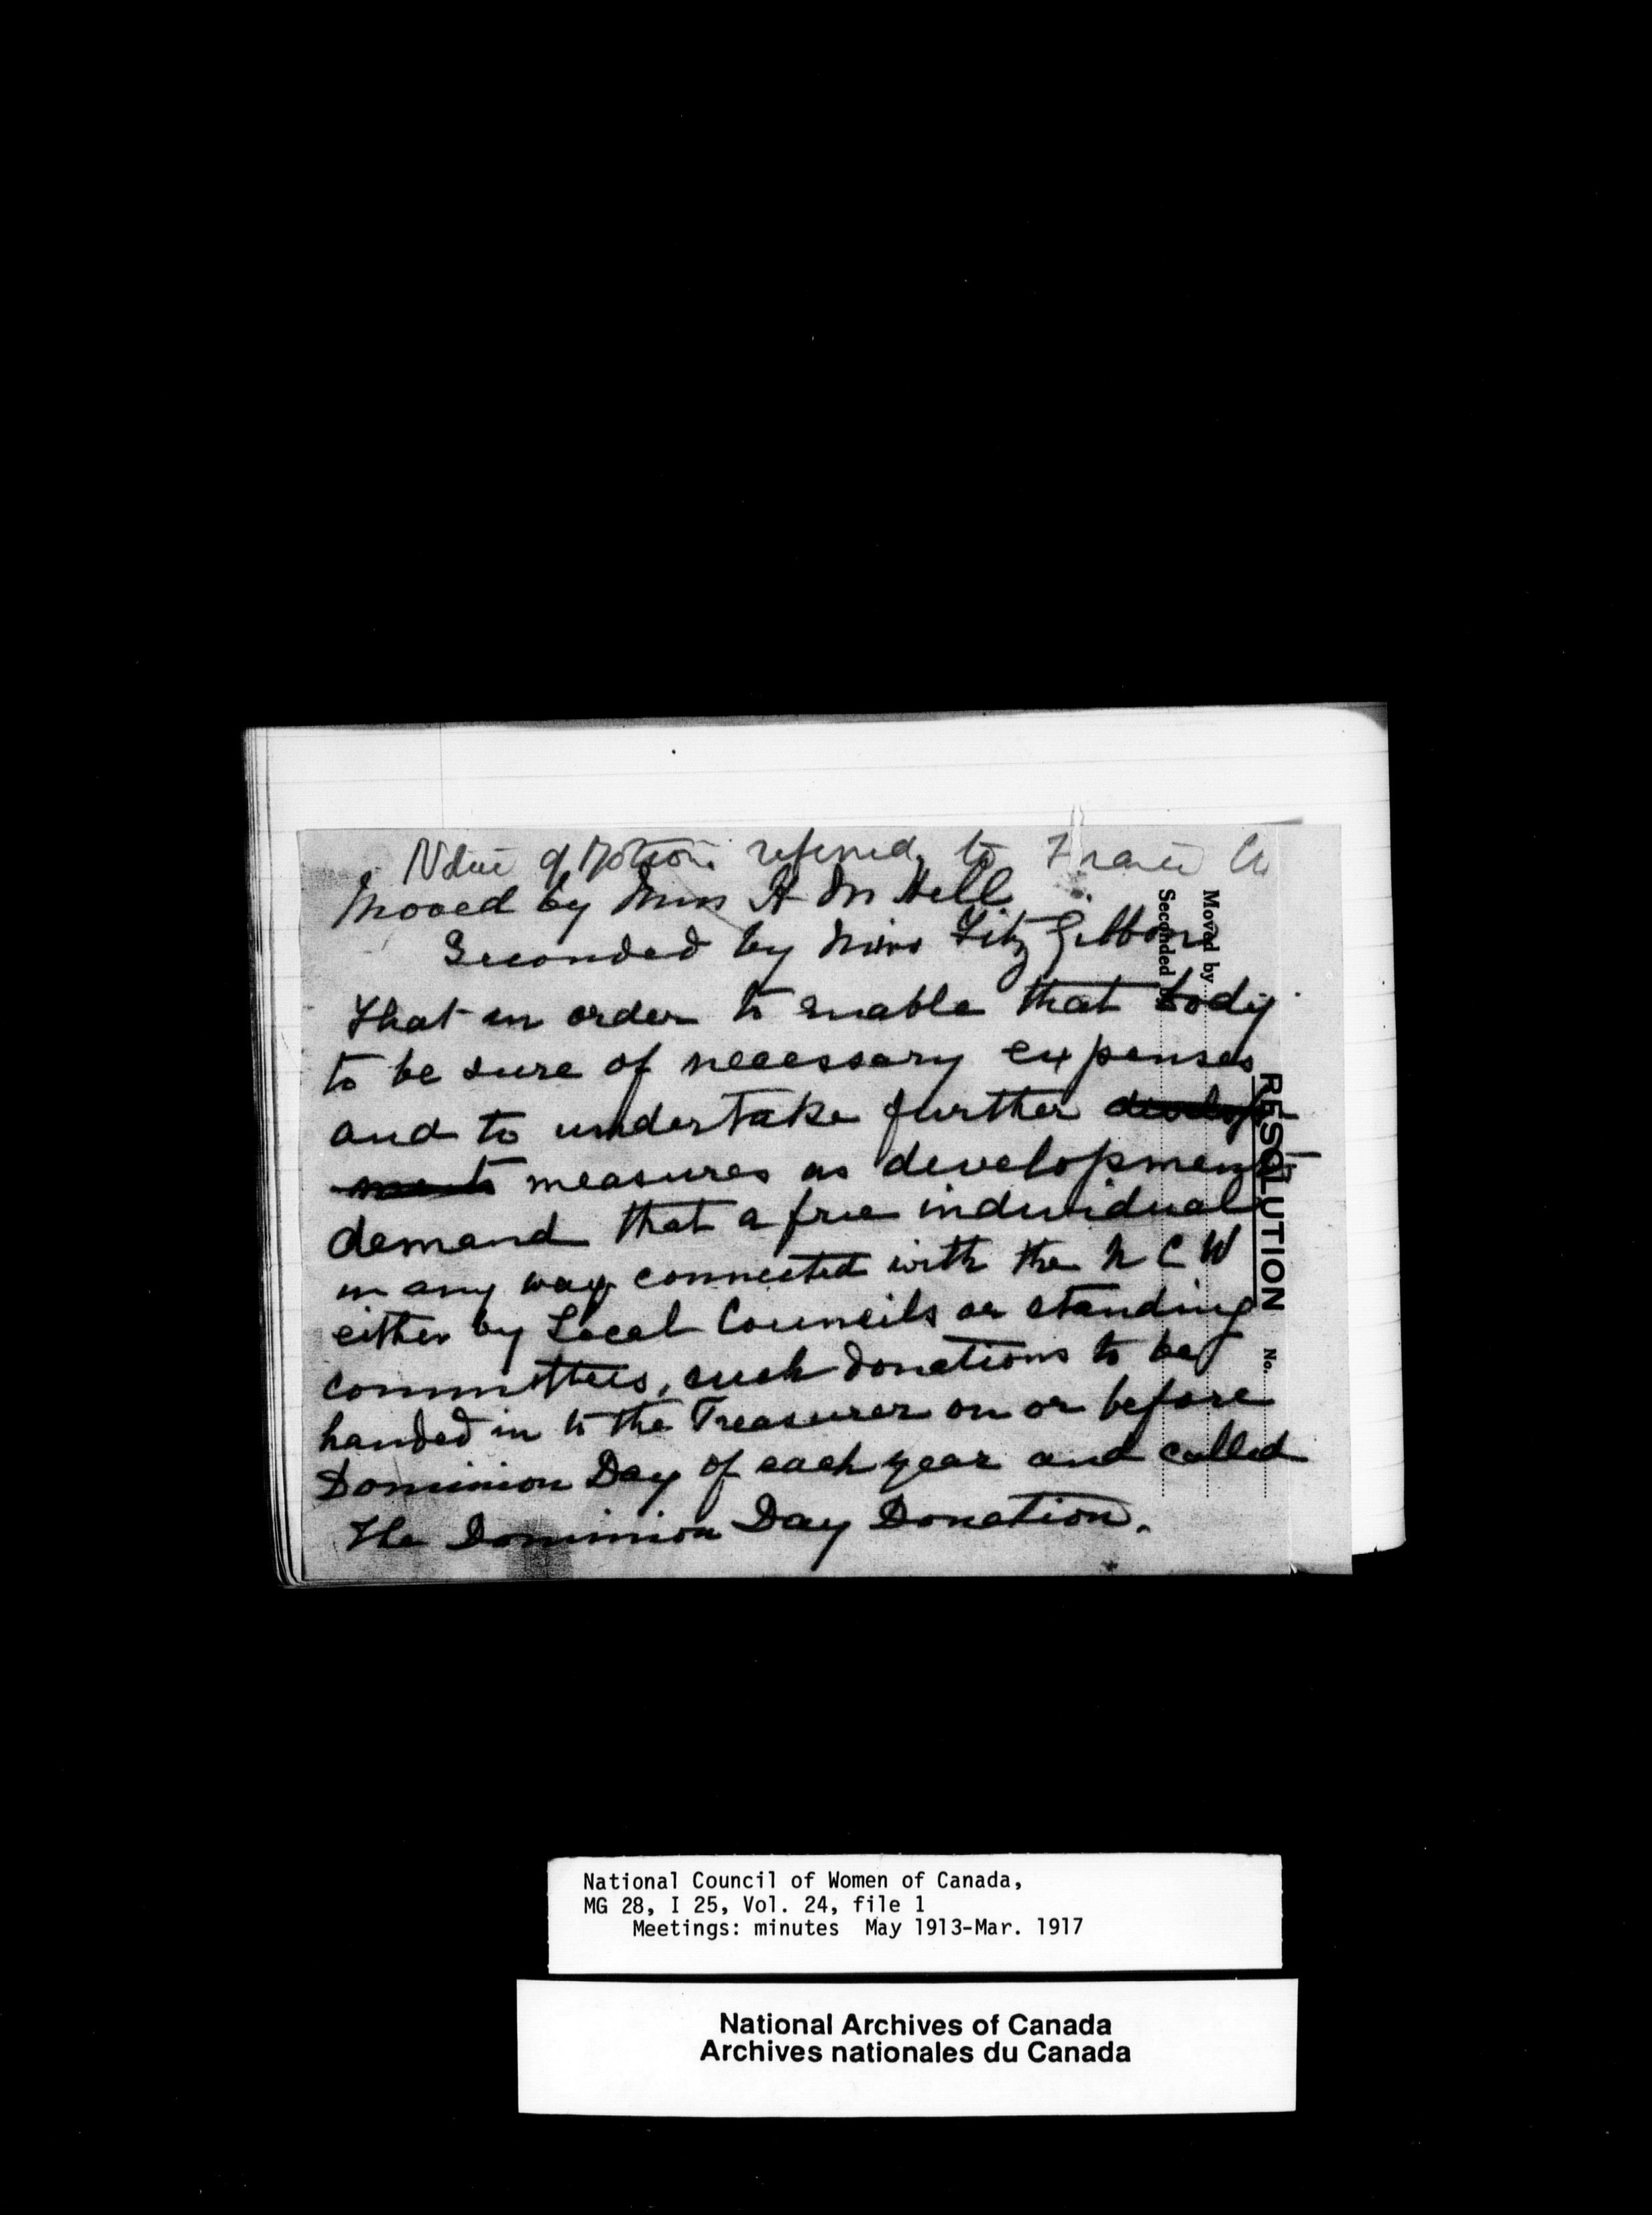 Notice of Motion referred to
Moved by Miss A M Hill
Seconded by Miss FitzGibbon
That in order to enable that body
to be sure of necessary expenses
and to undertake further develop
ments measures as development
demand that a free individual
in any way connected with the N C W
either by Local Councils or standing
committees, such donations to be
handed in to the Treasurer on or before
Dominion Day of each year and called
the Dominion Day Donation.
RESOLUTION No.
Moved by
Seconded
National Council of Women of Canada,
MG 28, I 25, Vol. 24, file 1
Meetings: minutes May 1913-Mar. 1917
National Archives of Canada
Archives nationales du Canada